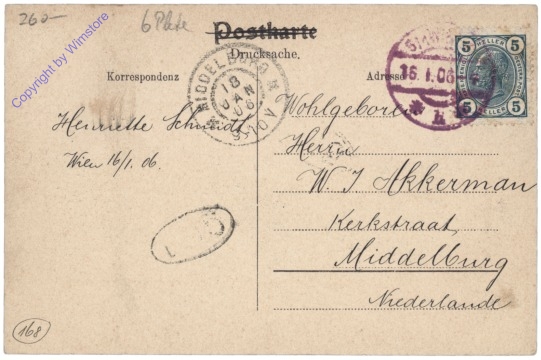 260-
6 Plate
Postkarte
Drucksache.
Korrespondenz
Adresse
Copyright by Wimstore
MIDDELBURG
18
JAN
06
16.1.06
5 HELLER 5
5 HELLER 5
Henriette Schmidt
Wien 16/1. 06.
Wohlgeboren
Herrn
W. J Akkerman
Kerkstraat
Middelburg
Niederlande
1
168